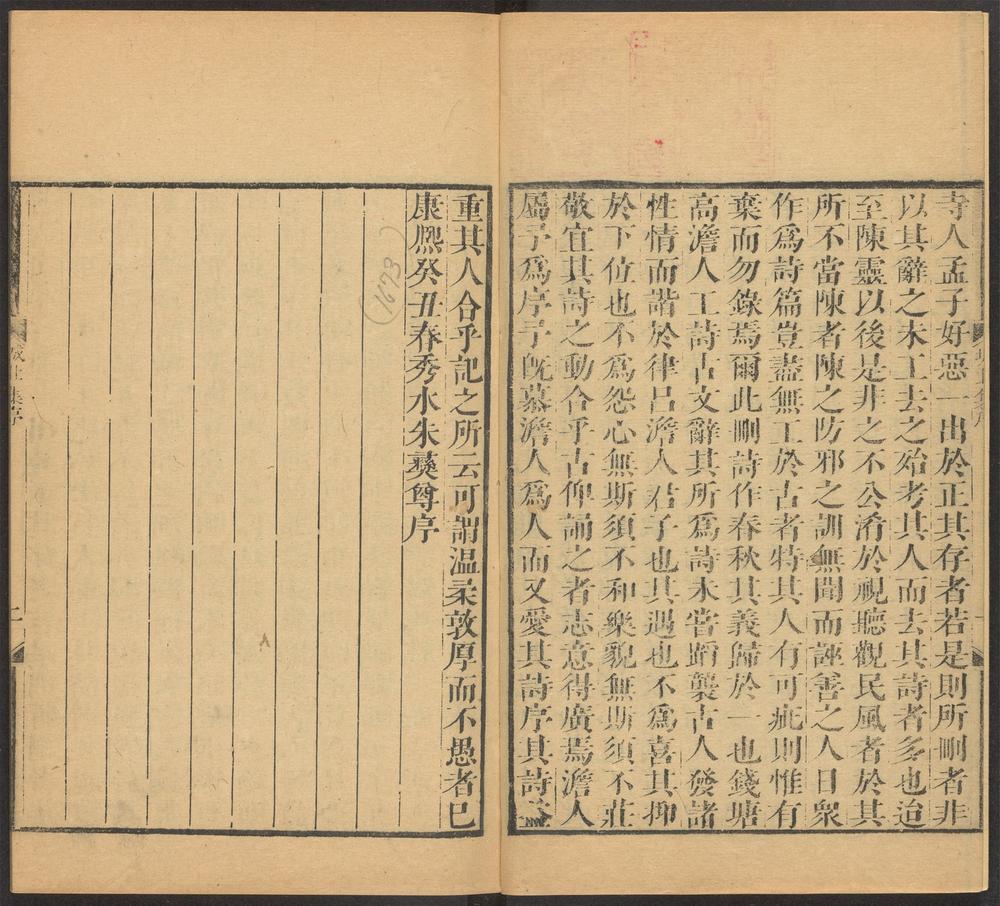 寺人孟子好惡一出於正其存者若是則所刪者非
以其辭之未工去之殆考其人而去其詩者多也迨
至陳靈以後是非之不公淆於視聽觀民風者於其
所不當陳者陳之防邪之訓無聞而誣善之人日衆
作爲詩篇豈盡無工於古者特其人有可疵則惟有
棄而勿錄焉爾此刪詩作春秋其義歸於一也錢塘
高澹人工詩古文辭其所爲詩未嘗蹈襲古人發諸
性情而諧於律呂澹人君子也其遇也不爲喜其抑
於下位也不爲怨心無斯須不和樂貌無斯須不莊
敬宜其詩之動合乎古仰誦之者志意得廣焉澹人
屬予爲序予旣慕澹人爲人而又愛其詩序其詩益
重其人合乎記之所云可謂温柔敦厚而不愚者已
康熙癸丑春秀水朱彝尊序
(1673)
集序
二